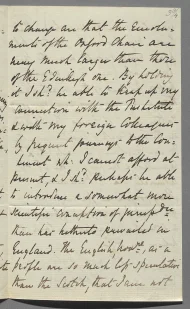 to change are that the Emolu-
ments of the Oxford Chair are
very much larger than those
of the Edinburgh one. By holding
it I shd. be able to keep up my
connection with the Institute
& with my foreign Colleagues
by frequent journeys to the Con-
tinent wh. I cannot afford at
present, & I shd. perhaps be able
to introduce a somewhat more
scientific conception of jurispdce
than has hitherto prevailed in
England. The English, howr., as a
people are so much less speculative
than the Scotch, that I am not